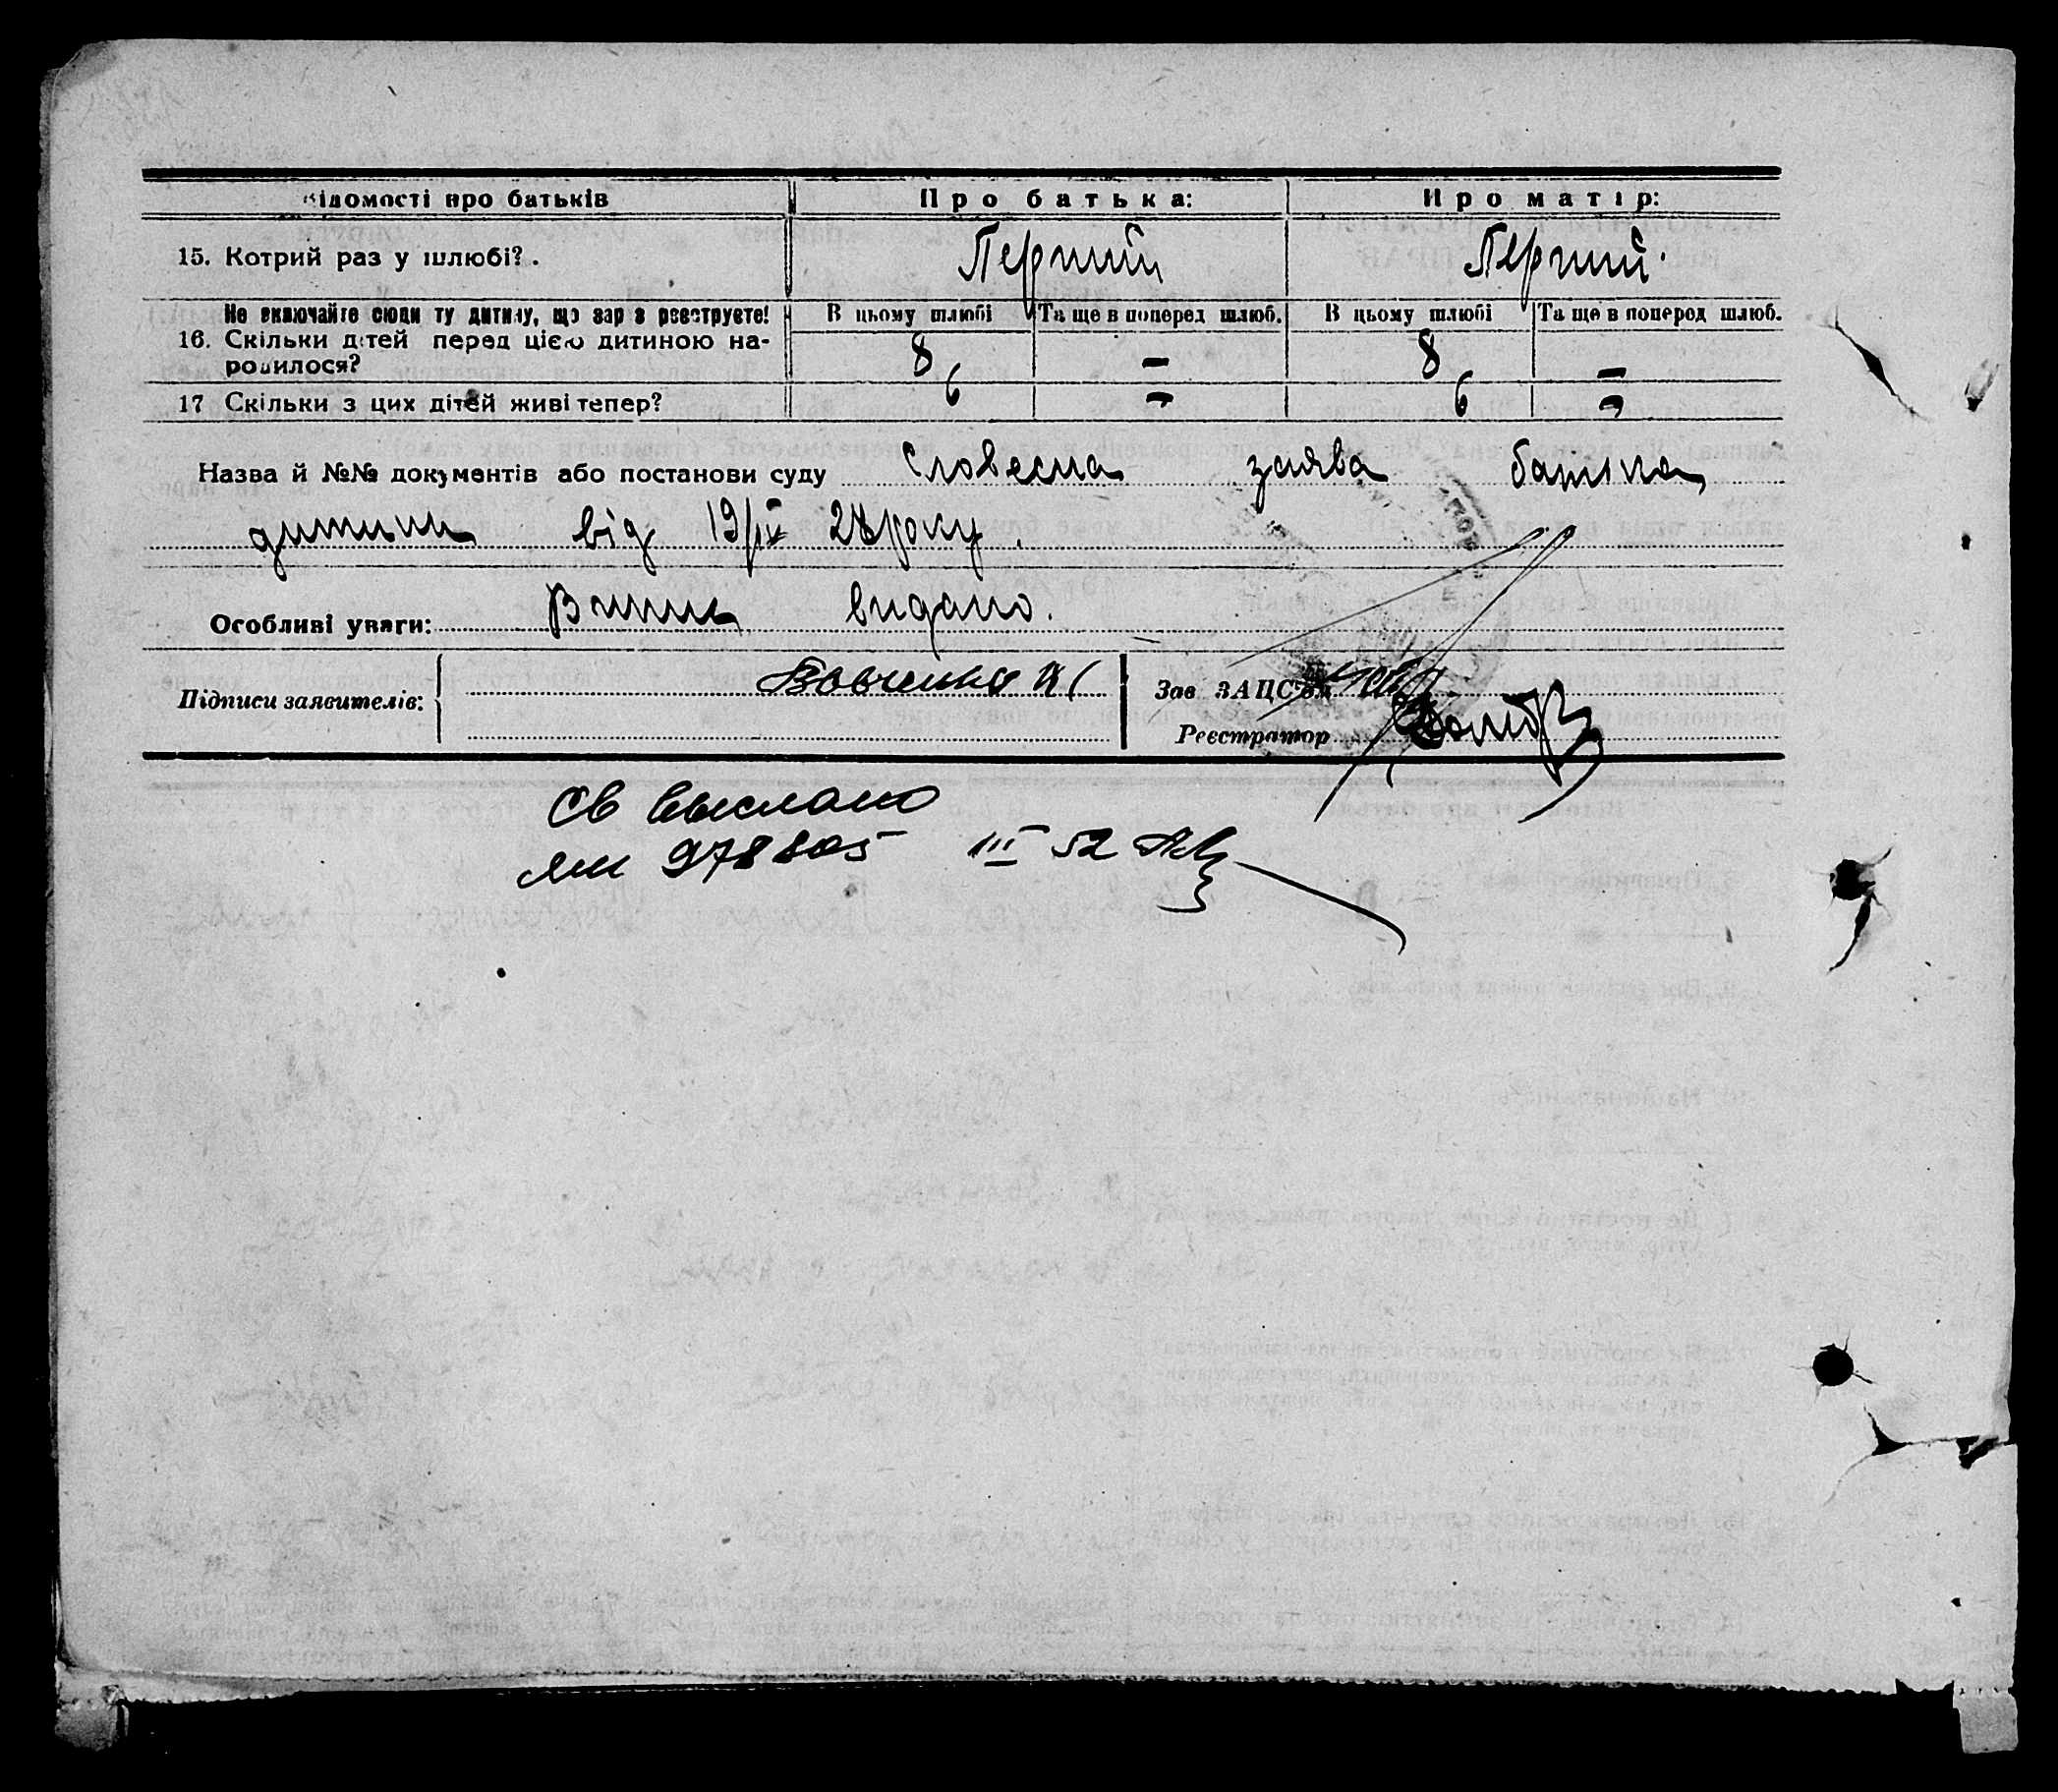 Відомості про батьків Про батька: Про матір:
15. Котрий раз у шлюбі? . Перший Перший.
Не включайте сюди ту дитину, що зараз реєструєте! В цьому шлюбі Та ще в поперед шлюб. В цьому шлюбі Та ще в поперед шлюб.
16. Скільки дітей перед цією дитиною на-
родилося? 8 – 8 –
17 Скільки з цих дітей живі тепер? 6 – 6 –
Назва й №№ документів або постанови суду Словесна заява батька
дитини від 19/IV 28 року.
Особливі уваги: Випис видано.
Підписи заявителів: Вовченко К Зав ЗАЦС'ом
Реєстратор
Св выслано
ЯМ 978805 III 52